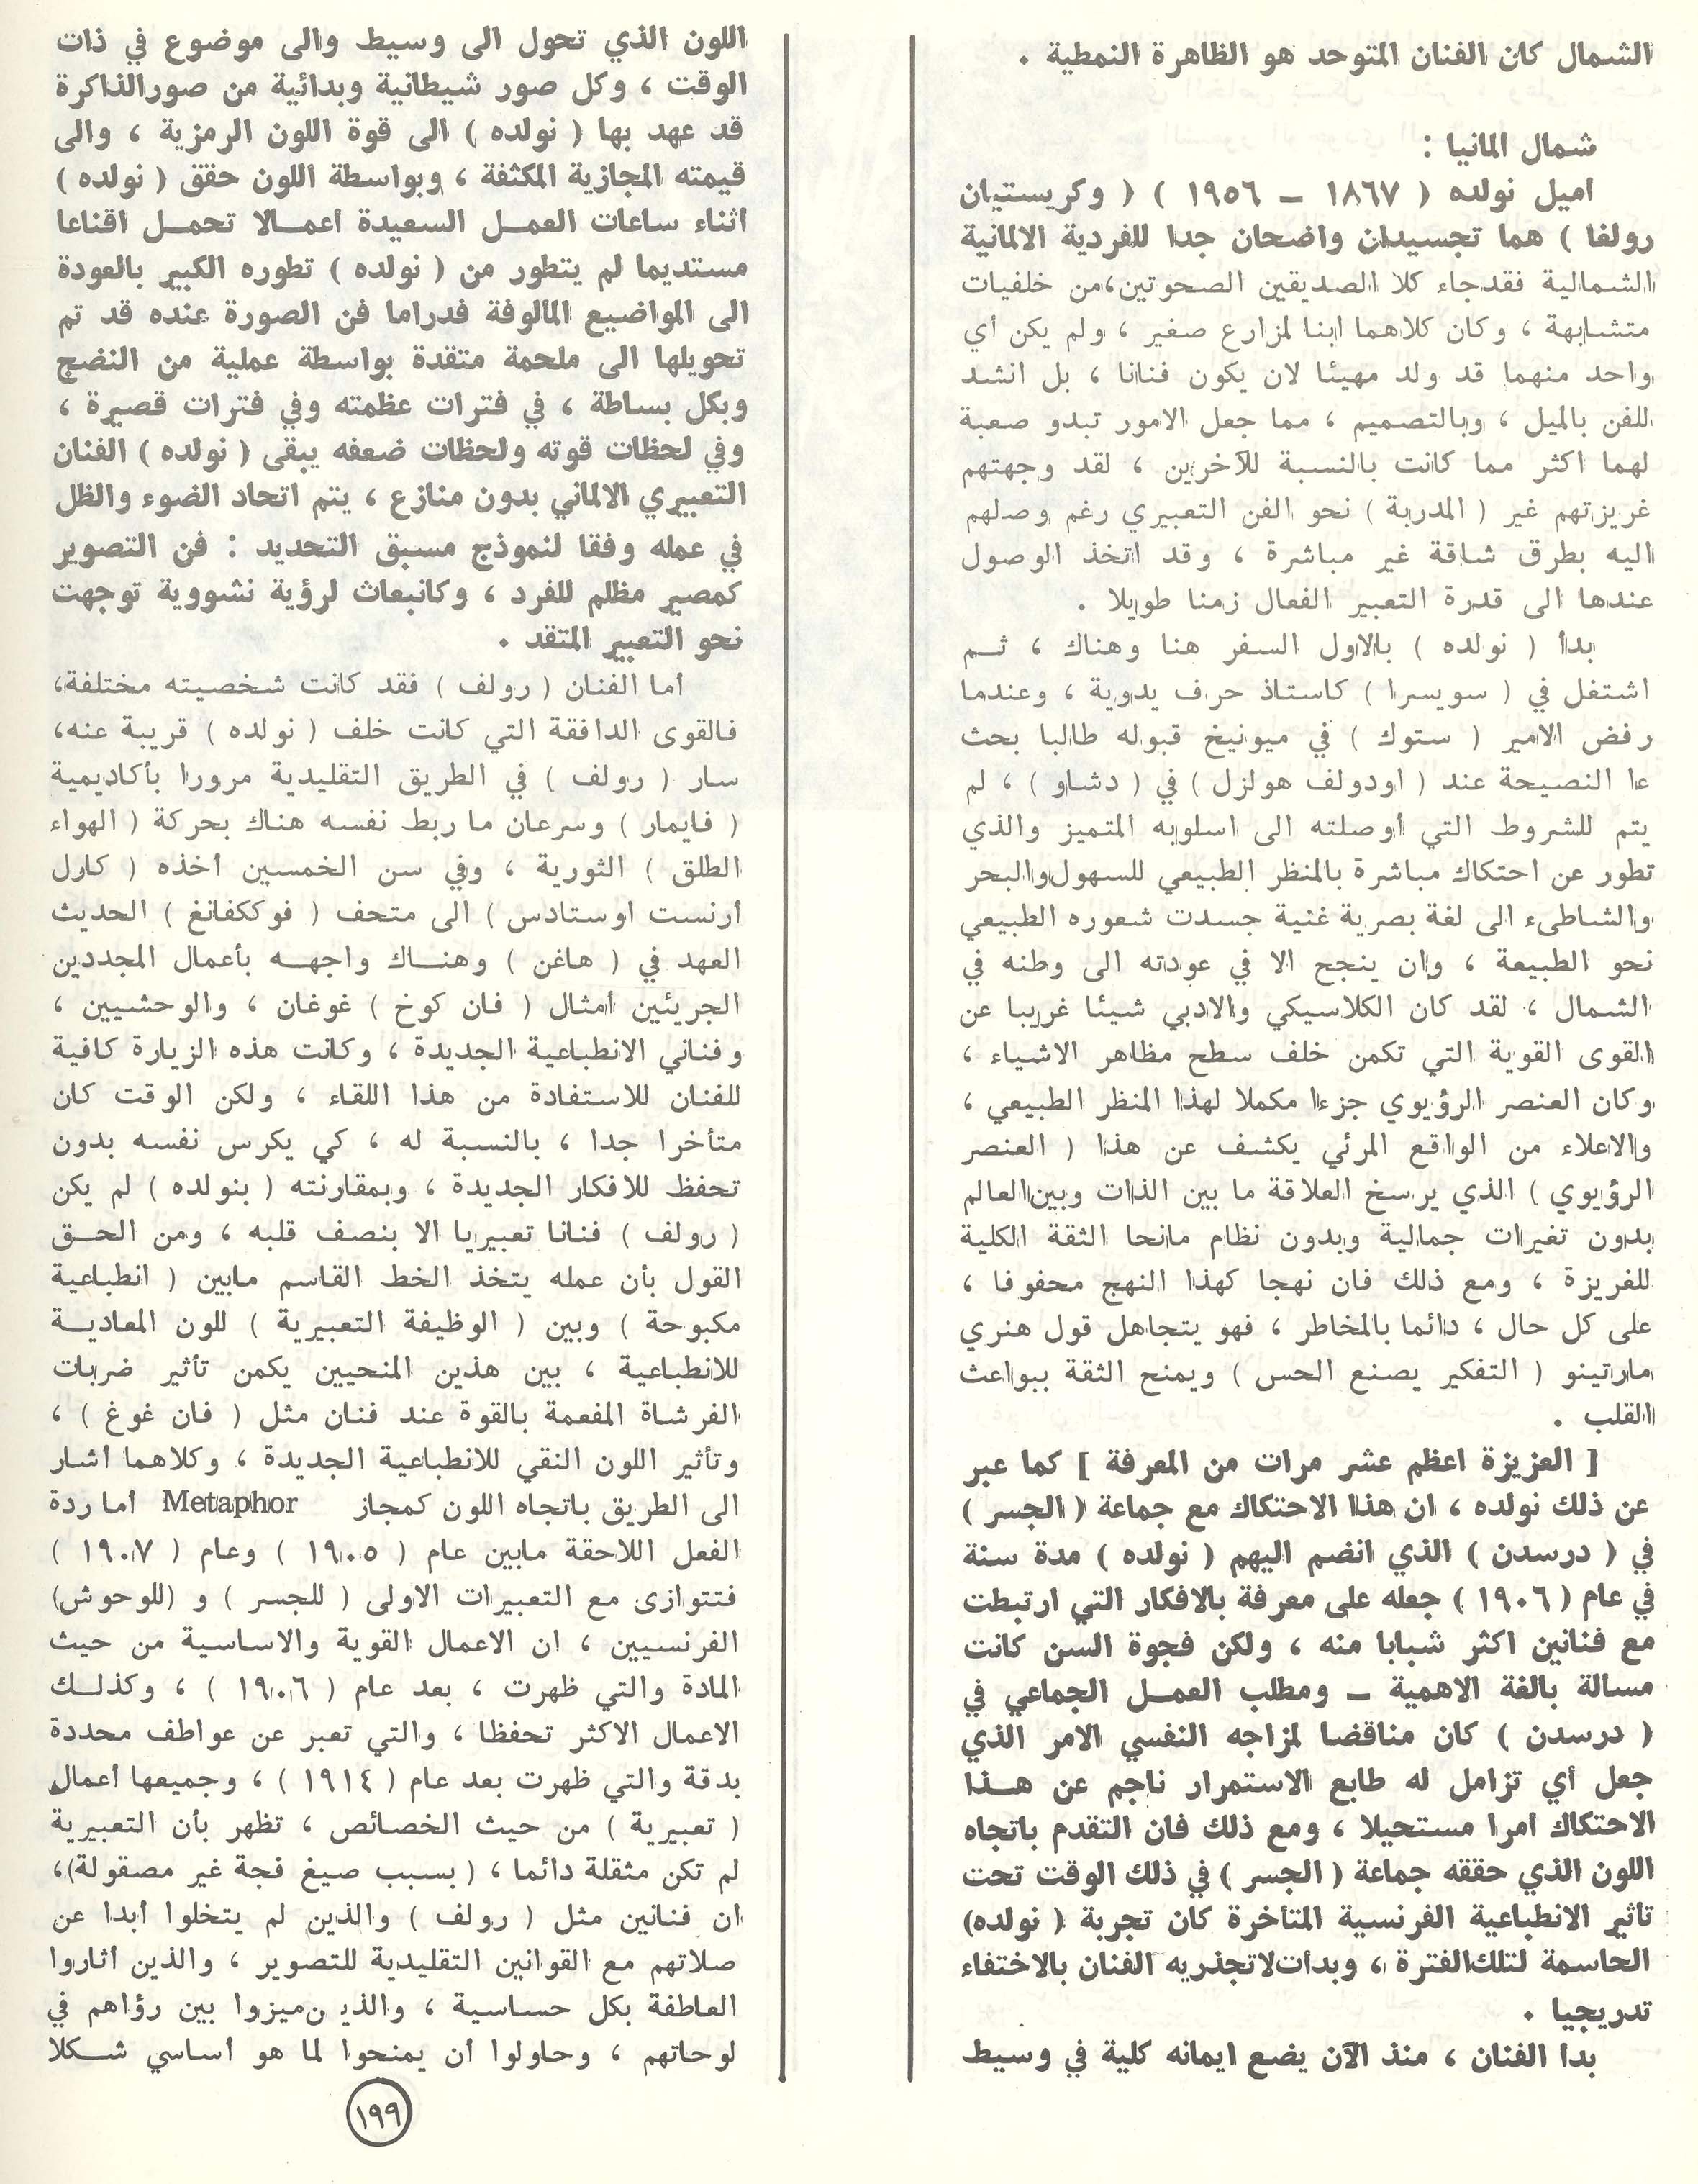 الشمال كان الفنان المتوحد هو الظاهرة النمطية .
شمال المانيا :
اميل نولده ( ١٨٦٧ – ١٩٥٦ ) ( وكريستيان
رولفا ) هما تجسيدان واضحان جدا للفردية الالمانية
الشمالية فقد جاء كلا الصديقين الصحوتين، من خلفيات
متشابهة ، وكان كلاهما ابنا لمزارع صغير ، ولم يكن أي
واحد منهما قد ولد مهيئا لان يكون فنانا ، بل انشد
للفن بالميل ، وبالتصميم ، مما جعل الامور تبدو صعبة
لهما اكثر مما كانت بالنسبة للآخرين ، لقد وجهتهم
غريزتهم غير ( المدربة ) نحو الفن التعبيري رغم وصلهم
اليه بطرق شاقة غير مباشرة ، وقد اتخذ الوصول
عندها الى قدرة التعبير الفعال زمنا طويلا .
بدأ ( نولده ) بالاول السفر هنا وهناك ، ثم
اشتغل في ( سويسرا ) كاستاذ حرف يدوية ، وعندما
رفض الامير ( ستوك ) في ميونيخ قبوله طالبا بحث
عا النصيحة عند ( اودولف هولزل ) في ( دشاو ) ، لم
يتم للشروط التي أوصلته الى اسلوبه المتميز والذي
تطور عن احتكاك مباشرة بالمنظر الطبيعي للسهول والبحر
والشاطىء الى لغة بصرية غنية جسدت شعوره الطبيعي
نحو الطبيعة ، وان ينجح الا في عودته الى وطنه في
الشمال ، لقد كان الكلاسيكي والادبي شيئا غريبا عن
القوى القوية التي تكمن خلف سطح مظاهر الاشياء ،
وكان العنصر الرؤيوي جزءا مكملا لهذا المنظر الطبيعي ،
والاعلاء من الواقع المرئي يكشف عن هذا ( العنصر
الرؤيوي ) الذي يرسخ العلاقة ما بين الذات وبين العالم
بدون تغيرات جمالية وبدون نظام مانحا الثقة الكلية
للغريزة ، ومع ذلك فان نهجا كهذا النهج محفوفا ،
على كل حال ، دائما بالمخاطر ، فهو يتجاهل قول هنري
مارتينو ( التفكير يصنع الحس ) ويمنح الثقة ببواعث
القلب .
[ العزيزة اعظم عشر مرات من المعرفة ] كما عبر
عن ذلك نولده ، ان هذا الاحتكاك مع جماعة ( الجسر )
في ( درسدن ) الذي انضم اليهم ( نولده ) مدة سنة
في عام ( ١٩٠٦ ) جعله على معرفة بالافكار التي ارتبطت
مع فنانين اكثر شبابا منه ، ولكن فجوة السن كانت
مسالة بالغة الاهمية – ومطلب العمل الجماعي في
( درسدن ) كان مناقضا لمزاجه النفسي الامر الذي
جعل أي تزامل له طابع الاستمرار ناجم عن هذا
الاحتكاك أمرا مستحيلا ، ومع ذلك فان التقدم باتجاه
اللون الذي حققه جماعة ( الجسر ) في ذلك الوقت تحت
تأثير الانطباعية الفرنسية المتأخرة كان تجربة ( نولده )
الحاسمة لتلك الفترة ، وبدأت لاتجذريه الفنان بالاختفاء
تدريجيا .
بدا الفنان ، منذ الآن يضع ايمانه كلية في وسيط
اللون الذي تحول الى وسيط والى موضوع في ذات
الوقت ، وكل صور شيطانية وبدائية من صور الذاكرة
قد عهد بها ( نولده ) الى قوة اللون الرمزية ، والى
قيمته المجازية المكثفة ، وبواسطة اللون حقق ( نولده )
اثناء ساعات العمل السعيدة اعمالا تحمل اقناعا
مستديما لم يتطور من ( نولده ) تطوره الكبير بالعودة
الى المواضيع المألوفة فدراما فن الصورة عنده قد تم
تحويلها الى ملحمة متقدة بواسطة عملية من النضج
وبكل بساطة ، في فترات عظمته وفي فترات قصيرة ،
وفي لحظات قوته ولحظات ضعفه يبقى ( نولده ) الفنان
التعبيري الالماني بدون منازع ، يتم اتحاد الضوء والظل
في عمله وفقا لنموذج مسبق التحديد : فن التصوير
كمصير مظلم للفرد ، وكانبعاث لرؤية نشووية توجهت
نحو التعبير المتقد .
أما الفنان ( رولف ) فقد كانت شخصيته مختلفة،
فالقوى الدافقة التي كانت خلف ( نولده ) قريبة عنه،
سار ( رولف ) في الطريق التقليدية مرورا بأكاديمية
( فايمار ) وسرعان ما ربط نفسه هناك بحركة ( الهواء
الطلق ) الثورية ، وفي سن الخمسين أخذه ( كاول
أرنست اوستادس ) الى متحف ( فوككفانغ ) الحديث
العهد في ( هاغن ) وهناك واجهه بأعمال المجددين
الجريئين أمثال ( فان كوخ ) غوغان ، والوحشيين ،
وفناني الانطباعية الجديدة ، وكانت هذه الزيارة كافية
للفنان للاستفادة من هذا اللقاء ، ولكن الوقت كان
متأخرا جدا ، بالنسبة له ، كي يكرس نفسه بدون
تحفظ للافكار الجديدة ، وبمقارنته ( بنولده ) لم يكن
( رولف ) فنانا تعبيريا الا بنصف قلبه ، ومن الحق
القول بأن عمله يتخذ الخط القاسم مابين ( انطباعية
مكبوحة ) وبين ( الوظيفة التعبيرية ) للون المعادية
للانطباعية ، بين هذين المنحيين يكمن تأثير ضربات
الفرشاة المفعمة بالقوة عند فنان مثل ( فان غوغ ) ،
وتأثير اللون النقي للانطباعية الجديدة ، وكلاهما أشار
الى الطريق باتجاه اللون كمجاز Metaphor أما ردة
الفعل اللاحقة مابين عام ( ١٩٠٥ ) وعام ( ١٩٠٧ )
فتتوازى مع التعبيرات الاولى ( للجسر ) و (للوحوش)
الفرنسيين ، ان الاعمال القوية والاساسية من حيث
المادة والتي ظهرت ، بعد عام ( ١٩٠٦ ) ، وكذلك
الاعمال الاكثر تحفظا ، والتي تعبر عن عواطف محددة
بدقة والتي ظهرت بعد عام ( ١٩١٤ ) ، وجميعها أعمال
( تعبيرية ) من حيث الخصائص ، تظهر بأن التعبيرية
لم تكن مثقلة دائما ، ( بسبب صيغ فجة غير مصقولة)،
ان فنانين مثل ( رولف ) والذين لم يتخلوا أبدا عن
صلاتهم مع القوانين التقليدية للتصوير ، والذين أثاروا
العاطفة بكل حساسية ، والذين ميزوا بين رؤاهم في
لوحاتهم ، وحاولوا أن يمنحوا لما هو أساسي شكلا
١٩٩